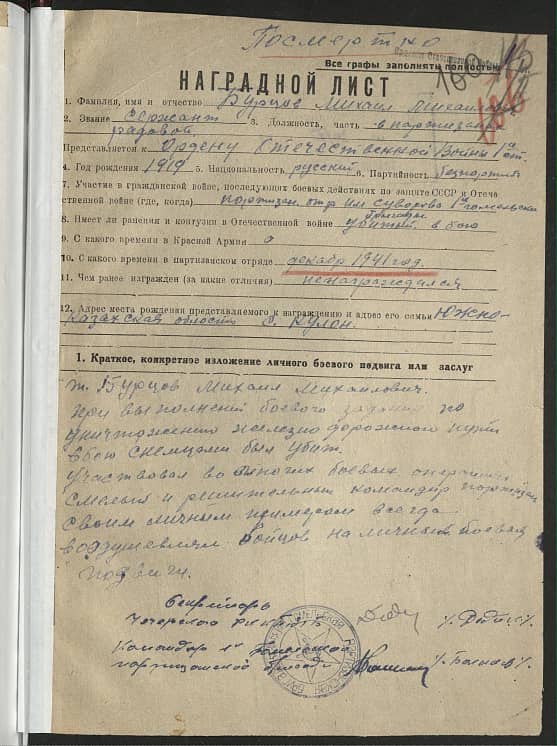 Посмертно
Все графы заполнять полностью
НАГРАДНОЙ ЛИСТ
1. Фамилия, имя и отчество Бурцов Михаил Михайлович
2. Звание Сержант 3. Должность, часть в партизанах
рядовой
Представляется к Ордену Отечественной Войны 1 ст.
4. Год рождения 1919 5. Национальность русский 6. Партийность беспартийн
7. Участие в гражданской войне, последующих боевых действиях по защите СССР и Отече
ственной войне (где, когда) партизан. отр. им Суворова 1й гомельской
бригады
8. Имеет ли ранения и контузии в Отечественной войне убитый в бою
9. С какого времени в Красной Армии
10. С какого времени в партизанском отряде декабр 1941 год.
11. Чем ранее награжден (за какие отличия) ненаграждался
12. Адрес места рождения представляемого к награждению и адрес его семьи Южно-
казахская область с. Кулон.
1. Краткое, конкретное изложение личного боевого подвига или заслуг
т. Бурцов Михаил Михайлович.
При выполнении боевого задания по
уничтожению железно дорожного пути
в бою с немцами был убит.
Участвовал во многих боевых операциях
смелый и решительный командир партизан
своим личным примером всегда
воодушевлял бойцов на личный боевые
подвиги.
Секретарь
Чечерского
Командир 1й Гомельской
партизанской бригады